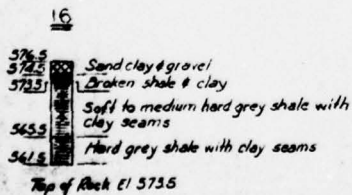 16
576.5
574.5
Sand clay & gravel
573.5
Broken shale & clay
Soft to medium hard grey shale with
clay seams
565.5
Hard grey shale with clay seams
561.5
Top of Rock El 573.5